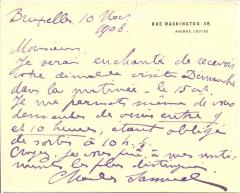 Bruxelles, 10 Nov.
1908.
RUE WASHINGTON 36
AVENUE LOUISE
Monsieur,
Je serai enchanté de recevoir
votre dimanche visite Dimanche
dans la matinée - le 15 ct.
Je me permets même de vous
demander de venir entre 9
et 10 heures, étant obligé
de sortir à 10 h. ½.
Croyez, je vous prie, à mes senti-
ments les plus distingués.
Charles Samuel